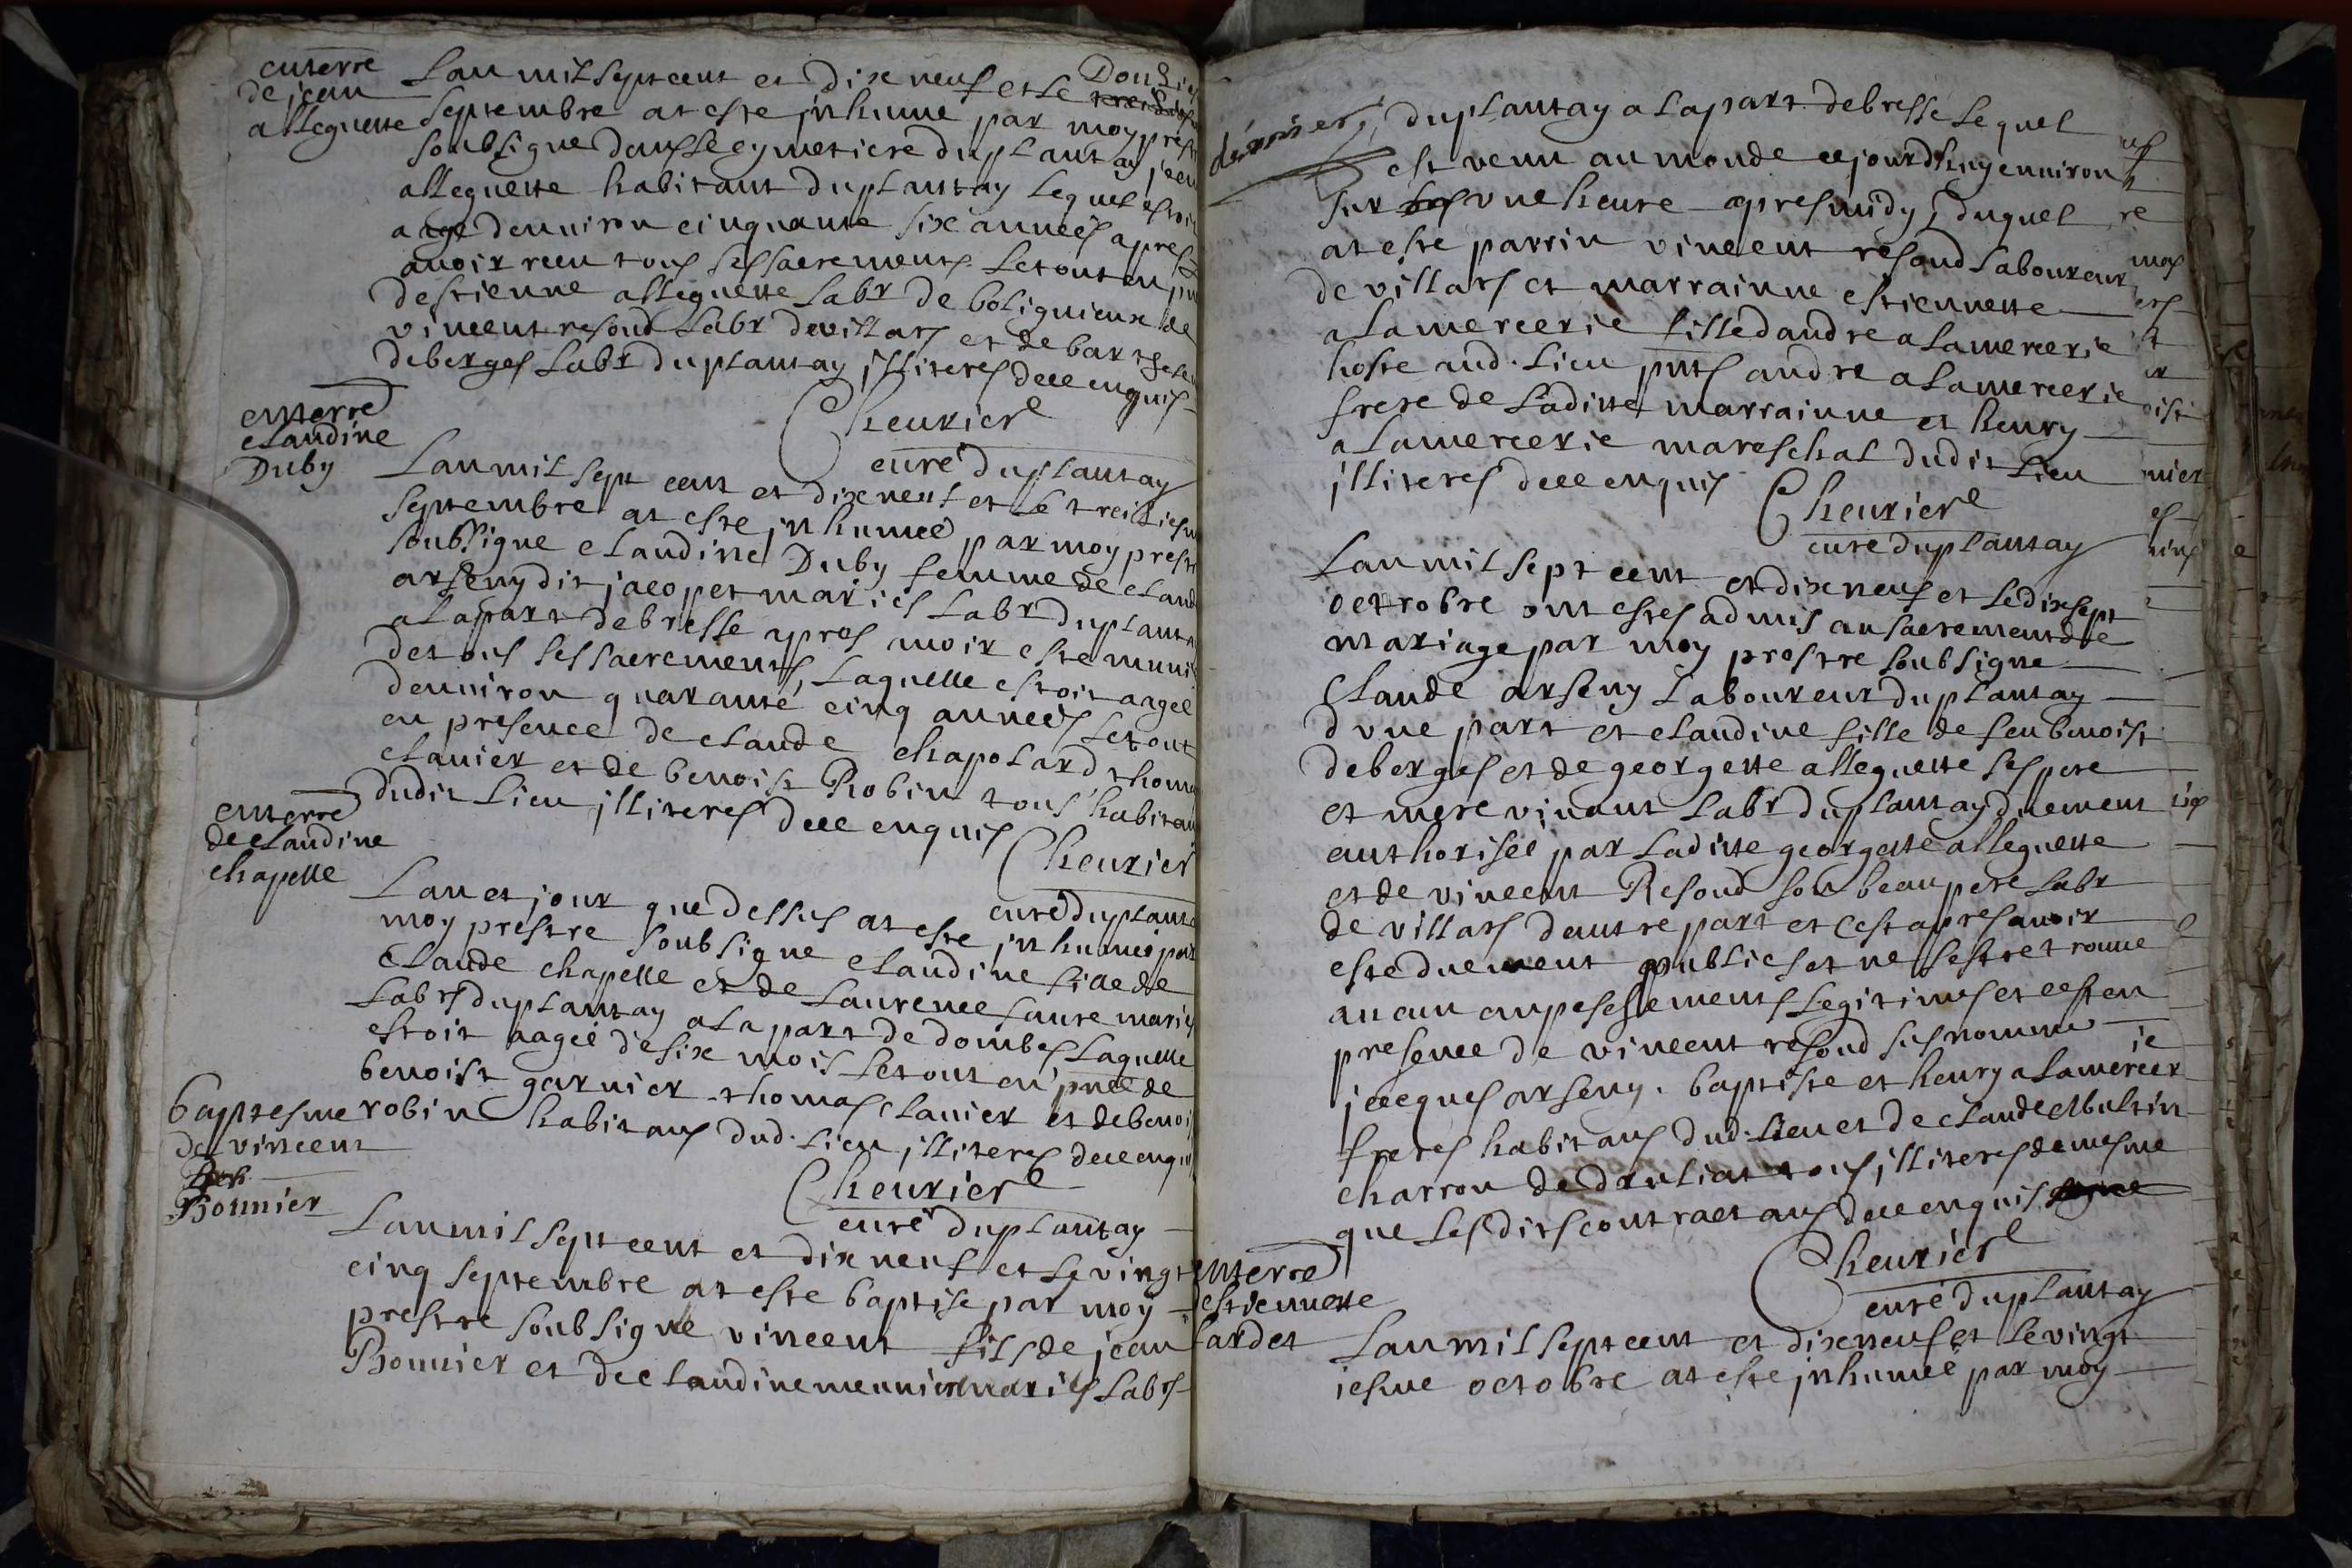 enterre
de jean
alleguette
Lan mil sept cent et dix neuf et le Douzies
septembre at este jnhume par moy prest
soubsigne dans le cymetiere duplantay jean
alleguette habitant duplantay lequel estoit
aage denuiron cinquante six années apres
auoir receu tous ses sacrements le tout en pnce
destienne alleguette labr de boliguieux de
vincent resoud labr devillars et de barthele
deberges labr duplantay jlliteres dece enquis
Cheurier
curé duplantay
enterre
claudine
Duby
Lan mil sept cent et dix neuf et le treiziesm
septembre at este jnhumeé par moy prestr
soubsigne claudine Duby femme de claud
arseny dit jacopet mariés labr duplanta
alapart debresse apres auoir este munie
detous ses sacrements, laquelle estoit aageé
denuiron quarante cinq années le tout
en presence de claude chapolard, thoma
clauier et de benoist Robin tous habitan
dudit lieu jlliteres dece enquis
Cheurier
curé duplanta
enterre
de claudine
chapelle
Lan et jour que dessus at este jnhumeé par
moy prestre soubsigne claudine fille de
claude chapelle et de laurence laure mariés
labrs duplantay alapart de dombes laquelle
estoit aageé de six mois le tout en pnce de
benoist garnier thomas clauier et de benoi
robin habitans dud. lieu jlliteres dece enquis
Cheurier
curé duplantay
baptesme
de vincent
Bonnier
Lan mil sept cent et dix neuf et le vingt
cinq septembre at este baptise par moy
prestre soubsigne vincent fils de jean
Bonnier et de claudine meunier mariés labrs
duplantay alapart debresse lequel
est venu au monde cejourdhuy enuiron
sur les vne heure apres midy, duquel
at este parrin vincent resoud laboureur
de villars et marrainne estiennette
alamercerie fille dandre alamercerie
hoste aud. lieu pnts andre alamercerie
frere de ladite marrainne et henry
alamercerie mareschal dudit lieu
jlliteres dece enquis
Cheurier
curé duplantay
Lan mil sept cent et dix neuf et le dixsept
octobre ont estes admis au sacrement de
mariage par moy prestre soubsigne
Claude arseny laboureur duplantay
dvne part et claudine fille de feu benoist
deberges et de georgette alleguette ses pere
et mere viuant labr duplantay duement
authoriseé par ladite georgette alleguette
et de vincent Resoud son beaupere labr
de villars dautre part et cest apres auoir
este duement publies et ne sestre trouue
aucun anpeschements legitimes et cest en
presence de vincent resoud susnomme
jacques arseny. baptiste et henry alamercerie
freres habitans dud. lieu et de claude
charron de druliat tous jlliteres de mesme
que lesdits contractans dece enquis
Cheurier
curé duplantay
enterre
destiennette
lardet
Lan mil sept cent et dix neuf et le vingt
iesme octobre at este jnhumeé par moy